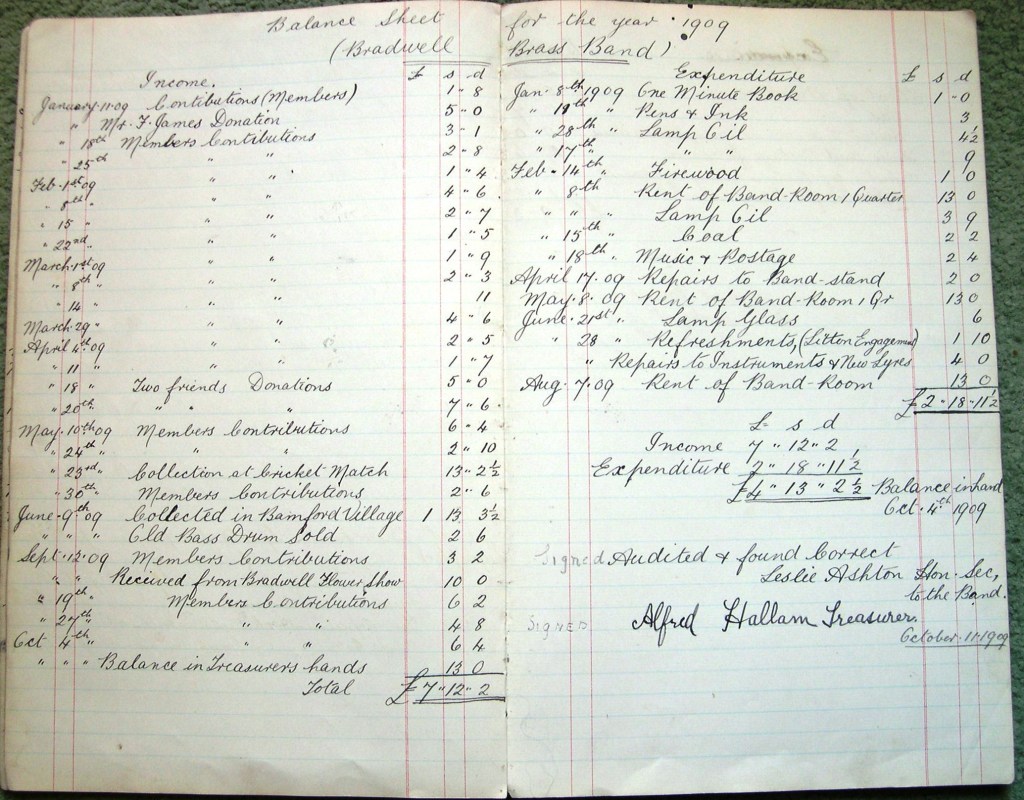 Balance Sheet for the year 1909
(Bradwell Brass Band)
Income. £ s d
January 11·09 Contibutions (Members) 1 " 8
" " Mr. F. James Donation 5 " 0
" 18th " Members Contributions 3 " 1
" 25th " " " 2 " 8
Feb·1st 09 " " 1 " 4
" 8th " " " 4 " 6
" 15 " " " 2 " 7
" 22nd " " " 1 " 5
March·1st 09 " " 1 " 9
" 8th " " " 2 " 3
" 14 " " " 11
March·29 " " " 4 " 6
April 4th 09 " " 2 " 5
" 11 " " " 1 " 7
" 18 " Two friends Donations 5 " 0
" 20th " " " 7 " 6
May·10th 09 Members Contributions 6 " 4
" 24th " " " 2 " 10
" 23rd " Collection at Cricket Match 13 " 2½
" 30th " Members Contributions 2 " 6
June·9th 09 Collected in Bamford Village 1 13 3½
" " " Old Bass Drum Sold 2 6
Sept·12·09 Members Contributions 3 2
" " Received from Bradwell Flower Show 10 0
" 19th " Members Contributions 6 2
" 27th " " " 4 8
Oct 4th " " " 6 4
" " " Balance in Treasurers hands 13 0
Total £7 " 12 " 2
Expenditure £ s d
Jan· 8th 1909 One Minute Book 1 - 0
" 11th " Pens & Ink 3
" 28th " Lamp Oil 4½
" 17th " " " 9
Feb·14th Firewood 1 0
" 8th Rent of Band-Room 1 Quarter 13 0
" " " Lamp Oil 3 9
" 15th " Coal 2 2
" 18th " Music & Postage 2 4
April 17·09 Repairs to Band-stand 2 0
May·8·09 Rent of Band-Room 1 Qr 13 0
June·21st " Lamp Glass 6
" 28 " Refreshments, (Litton Engagement) 1 10
" Repairs to Instruments & New Lyres 4 0
Aug·7·09 Rent of Band-Room 13 0
£2 " 18 " 11½
£ s d
Income 7 " 12 " 2
Expenditure 2 " 18 " 11½
£4 " 13 " 2½ Balance in hand
Oct·4th 1909
Signed Audited & found Correct
Leslie Ashton Hon·Sec,
to the Band.
Signed Alfred Hallam Treasurer.
October·11·1909